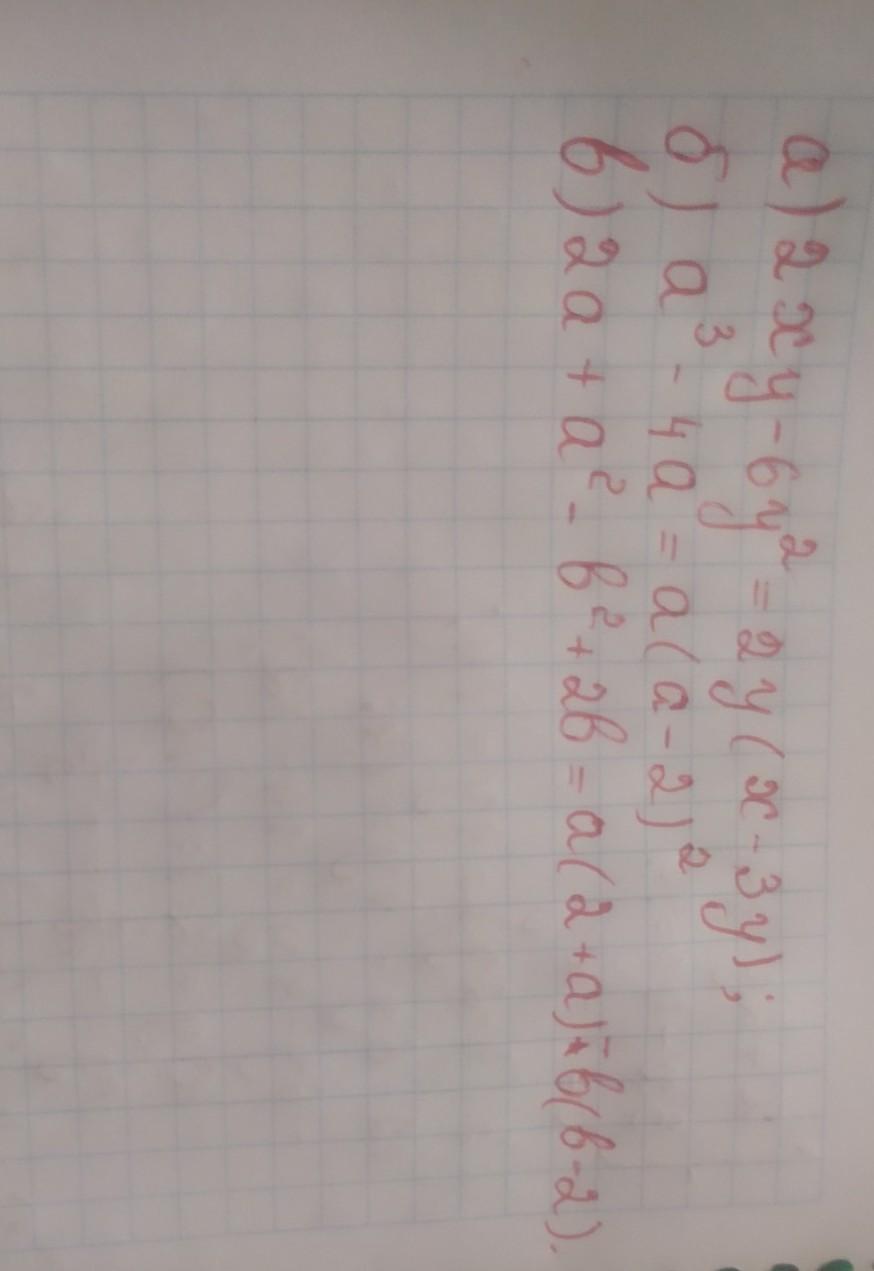 а) 2xy - 6y² = 2y(x - 3y);
б) a³ - 4a = a(a - 2)²
в) 2a + a² - b² + 2b = a(2 + a) - b(b - 2).